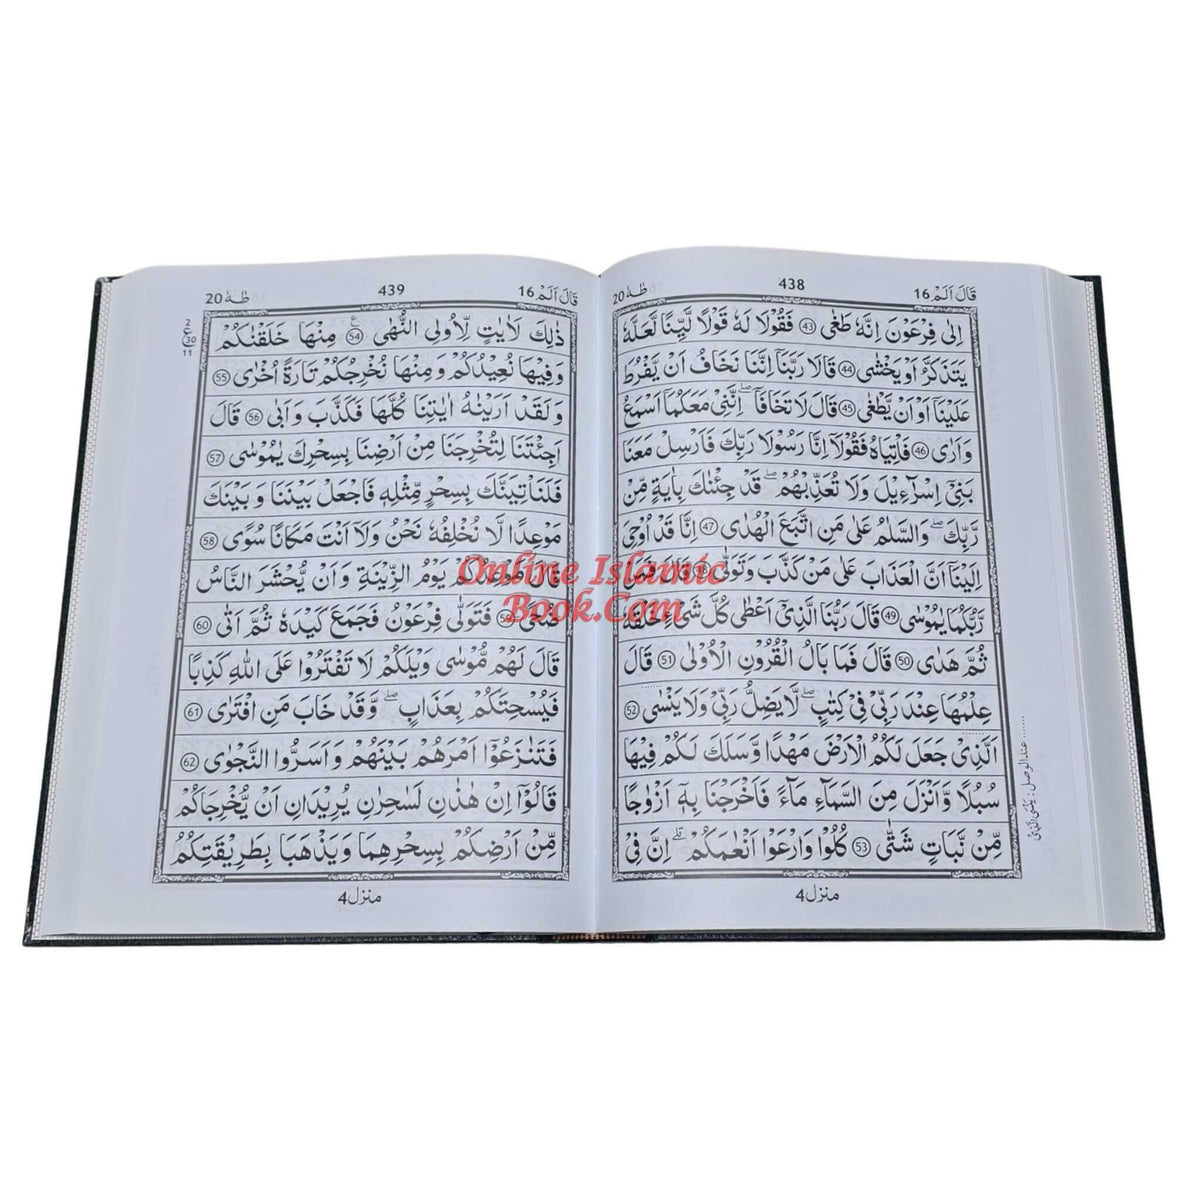 قَالَ اَلَمْ 16
438
طٰهٰ 20
اِلٰى فِرْعَوْنَ اِنَّهٗ طَغٰى 43 فَقُوْلَا لَهٗ قَوْلًا لَّيِّنًا لَّعَلَّهٗ
يَتَذَكَّرُ اَوْ يَخْشٰى 44 قَالَا رَبَّنَاۤ اِنَّنَا نَخَافُ اَنْ يَّفْرُطَ
عَلَيْنَاۤ اَوْ اَنْ يَّطْغٰى 45 قَالَ لَا تَخَافَاۤ اِنَّنِىْ مَعَكُمَاۤ اَسْمَعُ
وَاَرٰى 46 فَاْتِيٰهُ فَقُوْلَاۤ اِنَّا رَسُوْلَا رَبِّكَ فَاَرْسِلْ مَعَنَا
بَنِىْۤ اِسْرَآءِيْلَ وَلَا تُعَذِّبْهُمْ ؕ قَدْ جِئْنٰكَ بِاٰيَةٍ مِّنْ
رَّبِّكَ ؕ وَالسَّلٰمُ عَلٰى مَنِ اتَّبَعَ الْهُدٰى 47 اِنَّا قَدْ اُوْحِىَ
اِلَيْنَاۤ اَنَّ الْعَذَابَ عَلٰى مَنْ كَذَّبَ وَتَوَلّٰى 48 قَالَ فَمَنْ
رَّبُّكُمَا يٰمُوْسٰى 49 قَالَ رَبُّنَا الَّذِىْۤ اَعْطٰى كُلَّ شَىْءٍ خَلْقَهٗ
ثُمَّ هَدٰى 50 قَالَ فَمَا بَالُ الْقُرُوْنِ الْاُوْلٰى 51 قَالَ
عِلْمُهَا عِنْدَ رَبِّىْ فِىْ كِتٰبٍ ۚ لَا يَضِلُّ رَبِّىْ وَلَا يَنْسٰى 52
الَّذِىْ جَعَلَ لَكُمُ الْاَرْضَ مَهْدًا وَّسَلَكَ لَكُمْ فِيْهَا
سُبُلًا وَّاَنْزَلَ مِنَ السَّمَآءِ مَآءً ؕ فَاَخْرَجْنَا بِهٖۤ اَزْوَاجًا
مِّنْ نَّبَاتٍ شَتّٰى 53 كُلُوْا وَارْعَوْا اَنْعٰمَكُمْ ؕ اِنَّ فِىْ
منزل 4
قَالَ اَلَمْ 16
439
طٰهٰ 20
ذٰلِكَ لَاٰيٰتٍ لِّاُولِى النُّهٰى 54 مِنْهَا خَلَقْنٰكُمْ
وَفِيْهَا نُعِيْدُكُمْ وَمِنْهَا نُخْرِجُكُمْ تَارَةً اُخْرٰى 55
وَلَقَدْ اَرَيْنٰهُ اٰيٰتِنَا كُلَّهَا فَكَذَّبَ وَاَبٰى 56 قَالَ
اَجِئْتَنَا لِتُخْرِجَنَا مِنْ اَرْضِنَا بِسِحْرِكَ يٰمُوْسٰى 57
فَلَنَاْتِيَنَّكَ بِسِحْرٍ مِّثْلِهٖ فَاجْعَلْ بَيْنَنَا وَبَيْنَكَ
مَوْعِدًا لَّا نُخْلِفُهٗ نَحْنُ وَلَاۤ اَنْتَ مَكَانًا سُوًى 58
قَالَ مَوْعِدُكُمْ يَوْمُ الزِّيْنَةِ وَاَنْ يُّحْشَرَ النَّاسُ
ضُحًى 59 فَتَوَلّٰى فِرْعَوْنُ فَجَمَعَ كَيْدَهٗ ثُمَّ اَتٰى 60
قَالَ لَهُمْ مُّوْسٰى وَيْلَكُمْ لَا تَفْتَرُوْا عَلَى اللّٰهِ كَذِبًا
فَيُسْحِتَكُمْ بِعَذَابٍ ۚ وَقَدْ خَابَ مَنِ افْتَرٰى 61
فَتَنٰزَعُوْۤا اَمْرَهُمْ بَيْنَهُمْ وَاَسَرُّوا النَّجْوٰى 62
قَالُوْۤا اِنْ هٰذٰنِ لَسٰحِرٰنِ يُرِيْدَانِ اَنْ يُّخْرِجٰكُمْ
مِّنْ اَرْضِكُمْ بِسِحْرِهِمَا وَيَذْهَبَا بِطَرِيْقَتِكُمُ
منزل 4
2
ع 30
11
Online Islamic
Book.Com